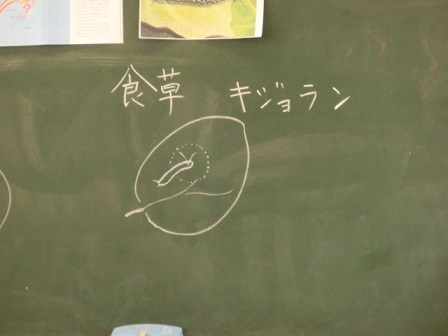 食草 キジョラン